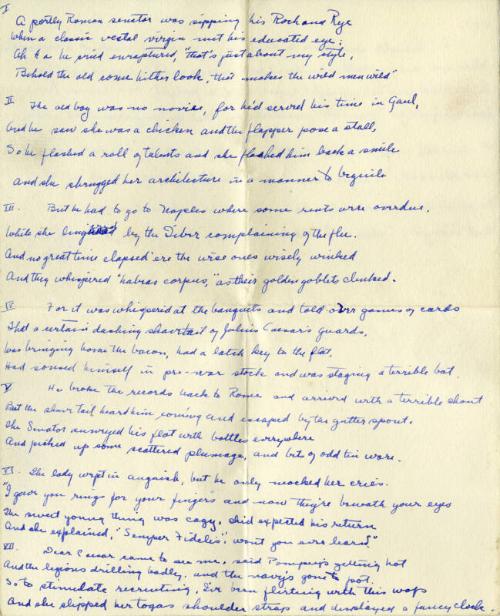 I
A portly Roman senator was sipping his Rock and Rye
When a classic vestal virgin met his educated eye;
Ah h a he cried enraptured, "that's just about my style,
Behold the old come hither look, that makes the wild men wild"
II The old boy was no novice, for he'd served his time in Gaul,
And he saw she was a chicken and the flapper pose a stall,
So he flashed a roll of talents and she flashed him back a smile
And she shrugged her architecture in a manner to beguile
III. But he had to go to Naples where some rents were overdue.
While she lingered by the Tiber complaining of the flu.
And no great time elapsed 'ere the wise ones wisely winked
And they whispered "habeas corpus," as their golden goblets clinked.
IV For it was whispered at the banquets and told o'er games of cards
That a certain dashing shavetail of Julius Caesar's guards,
Was bringing home the bacon, had a latch key to the flat,
Had soused himself in pre-war stock and was staging a terrible bat.
V He broke the records back to Rome and arrived with a terrible shout
But the shave tail heard him coming and escaped by the gutter spout.
The Senator surveyed his flat with bottles everywhere
And picked up some scattered plumage, and bits of odd tin ware.
VI. The lady wept in anguish, but he only mocked her cries.
"I gave you rings for your fingers and now they're beneath your eyes
The sweet young thing was cagy, she'd expected his return
And she explained, "Semper Fidelis", won't you ever learn?"
VII. Dear Caesar came to see me, said Pompey's getting hot
And the legions drilling badly, and the navy's gone to pot.
So to stimulate recruiting, I've been flirting with this wop
And she slipped her togas shoulder straps and displayed a fancy clock.